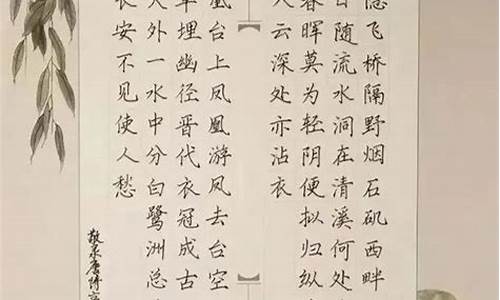 隐飞桥隔野烟石矶西畔
日随流水洞在清溪何处
春晖莫为轻阴便拟归纵
人云深处亦沾衣
凰台上凤凰游凤去台空
草埋幽径晋代衣冠成古
天外一水中分白鹭洲总
长安不见使人愁
敬录唐诗